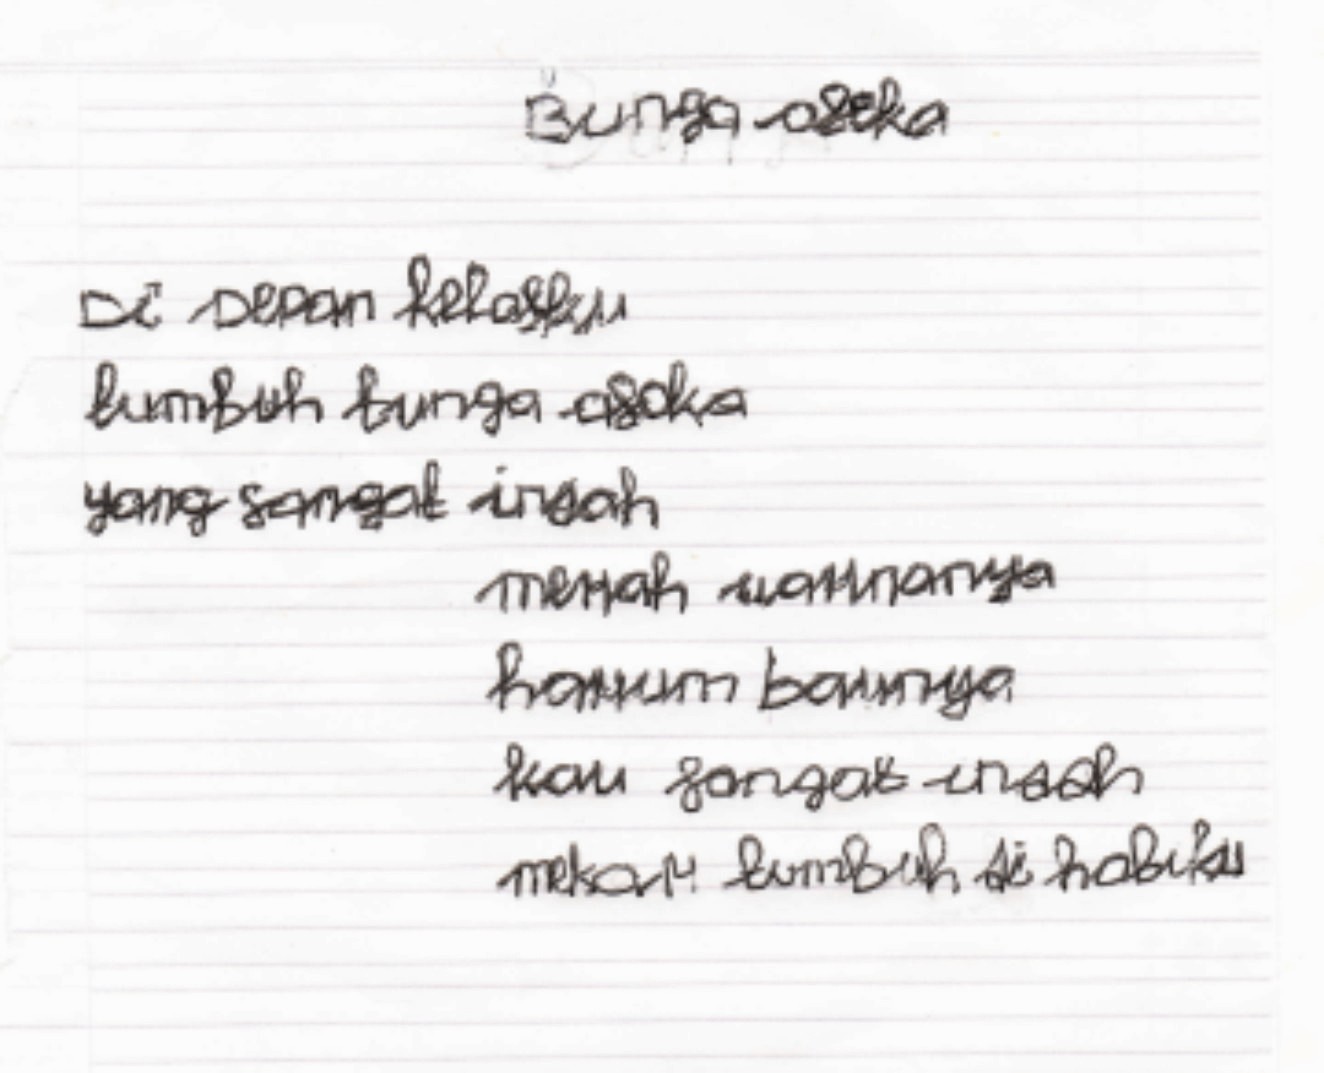 Bunga asoka
Di Depan kelasku
tumbuh bunga asoka
yang sangat indah
merah warnanya
harum baunya
kau sangat indah
mekar tumbuh di hatiku